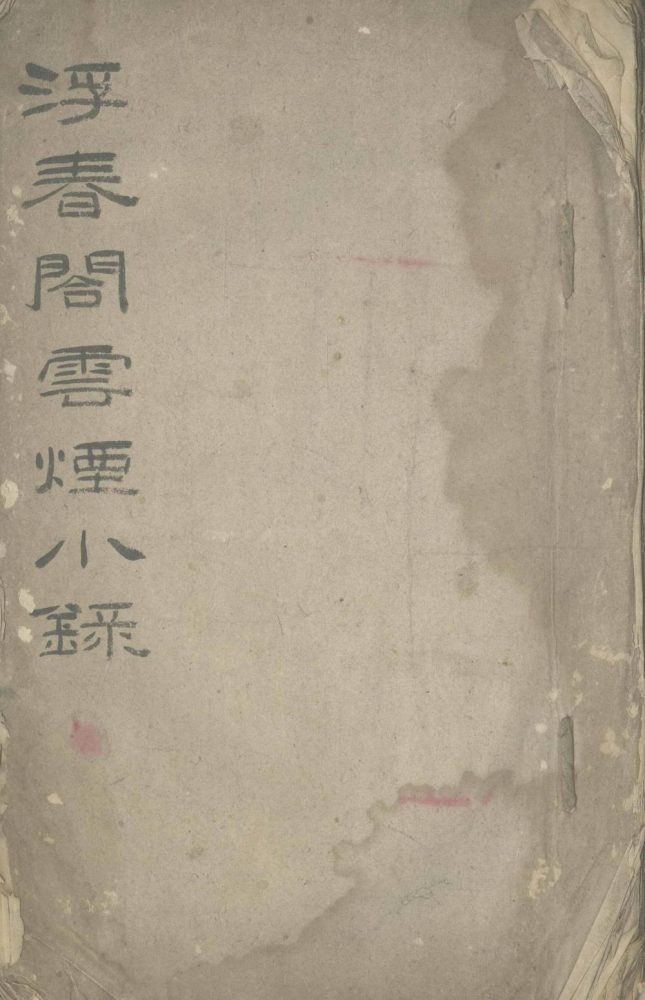 浮春閣雲煙小録